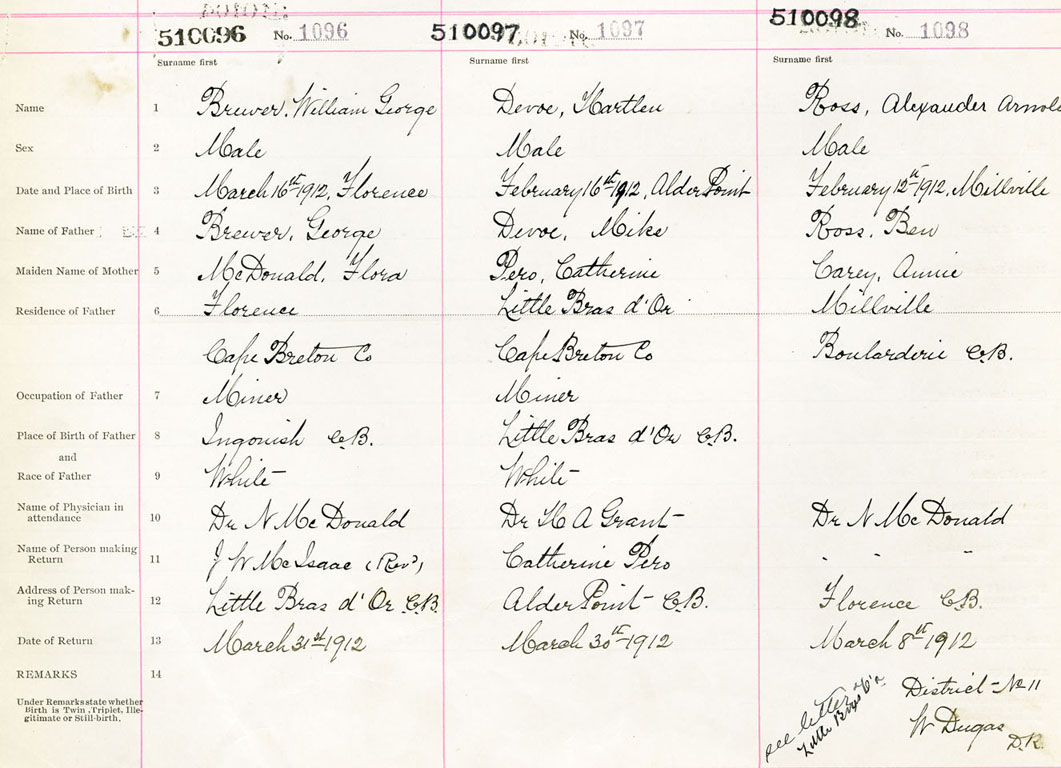 510096 No. 1096 510097 No. 1097 510098 No. 1098
Surname first Surname first Surname first
Name 1 Brewer, William George Devoe, Hartlen Ross, Alexander Arnold
Sex 2 Male Male Male
Date and Place of Birth 3 March 16th 1912, Florence February 16th 1912, Alder Point February 12th 1912, Millville
Name of Father 4 Brewer, George Devoe, Mike Ross, Ben
Maiden Name of Mother 5 McDonald, Flora Pero, Catherine Carey, Annie
Residence of Father 6 Florence Little Bras d'Or Millville
Cape Breton Co Cape Breton Co Boularderie C.B.
Occupation of Father 7 Miner Miner
Place of Birth of Father 8 Ingonish C.B. Little Bras d'Or C.B.
and
Race of Father 9 White White
Name of Physician in
attendance 10 Dr N McDonald Dr H A Grant Dr N McDonald
Name of Person making
Return 11 J W McIsaac (Rev) Catherine Pero " " "
Address of Person mak-
ing Return 12 Little Bras d'Or C.B. Alder Point C.B. Florence C.B.
Date of Return 13 March 31st 1912 March 30th 1912 March 8th 1912
REMARKS 14
Under Remarks state whether
Birth is Twin, Triplet, Ille-
gitimate or Still-birth.
see letter
Little Bras
District No 11
W Dugas
D.R.